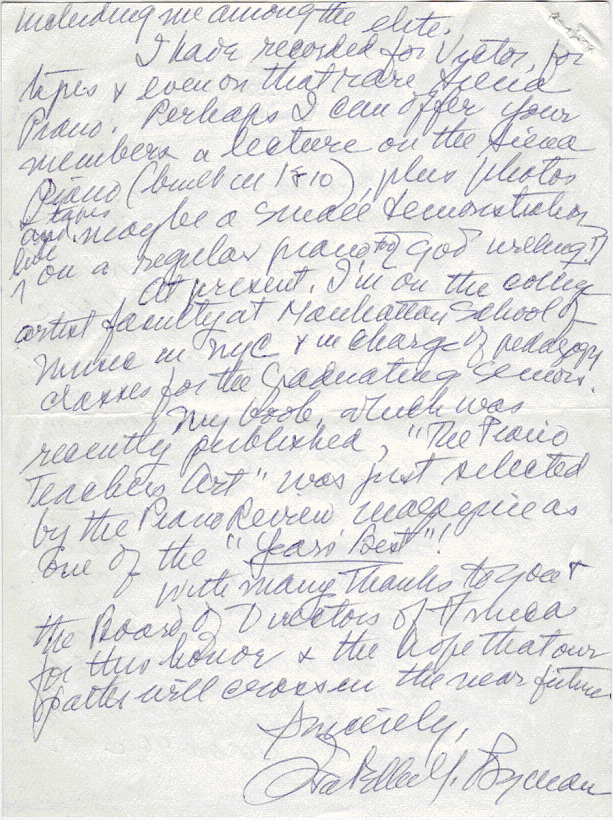 including me among the elite.
I have recorded for Victor, for
tapes & even on that rare Siena
Piano. Perhaps I can offer your
members a lecture on the Siena
Piano (built in 1810), plus photos
& tapes
and, maybe a small demonstration
live
on a regular piano too God willing!)
At present, I'm on the college
artist faculty at Manhattan School of
Music in NYC & in charge of pedagogy
classes for the graduating seniors.
My book, which was
recently published, "The Piano
Teachers Art" was just selected
by the Piano Review magazine as
one of the "Years Best"!
With many thanks to you &
the Board of Directors of Amica
for this honor & the hope that our
paths will cross in the near future.
Sincerely,
Isabelle Y. Byman